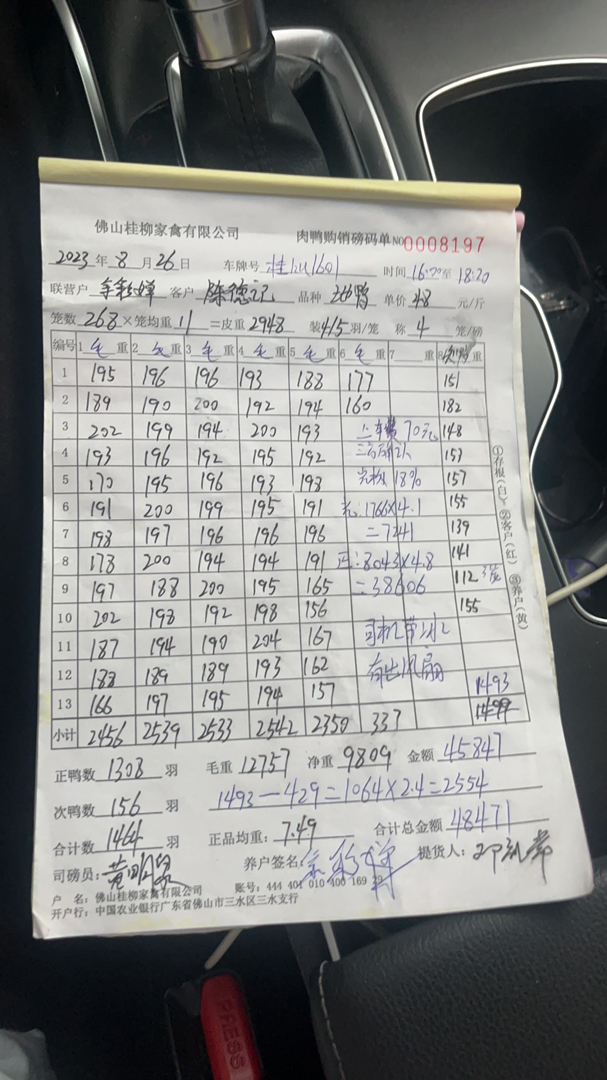 佛山桂柳家禽有限公司 肉鸭购销磅码单 NO 0008197
2023 年 8 月 26 日 车牌号 桂 1601 时间 16:20 至 18:20
联营户 客户 陈德记 品种 单价 4.8 元/斤
笼数 268 ×笼均重 11 =皮重 2948 装 4/5 羽/笼 称 4 笼/磅
编号 1 毛 重 2 毛 重 3 毛 重 4 毛 重 5 毛 重 6 毛 重 7 重 8 重
1 195 196 196 193 188 177 151
2 189 190 200 192 194 160 182
3 202 199 194 200 193 上车费70元 148
4 193 196 192 195 192 157
5 170 195 196 193 193 18% 157
6 191 200 199 195 191 1766×4.1 155
7 198 197 196 196 196 =7241 139
8 178 200 194 194 191 正:8043×4.8 141
9 197 188 200 195 165 =38606 112
10 202 198 192 198 156 155
11 187 194 190 204 167 司机带
12 188 189 189 193 162 有出风扇
13 166 197 195 194 157 1493
小计 2456 2539 2533 2542 2350 337 1499
正鸭数 1308 羽 毛重 12757 净重 9809 金额 45847
次鸭数 156 羽 1493-429=1064×2.4=2554
合计数 1464 羽 正品均重: 7.49 合计总金额 48471
司磅员: 养户签名: 提货人:
户 名: 佛山桂柳家禽有限公司 账号: 444 401 010 400 169 29
开户行: 中国农业银行广东省佛山市三水区三水支行
①存根(白)②客户(红)③养户(黄)
PRESS